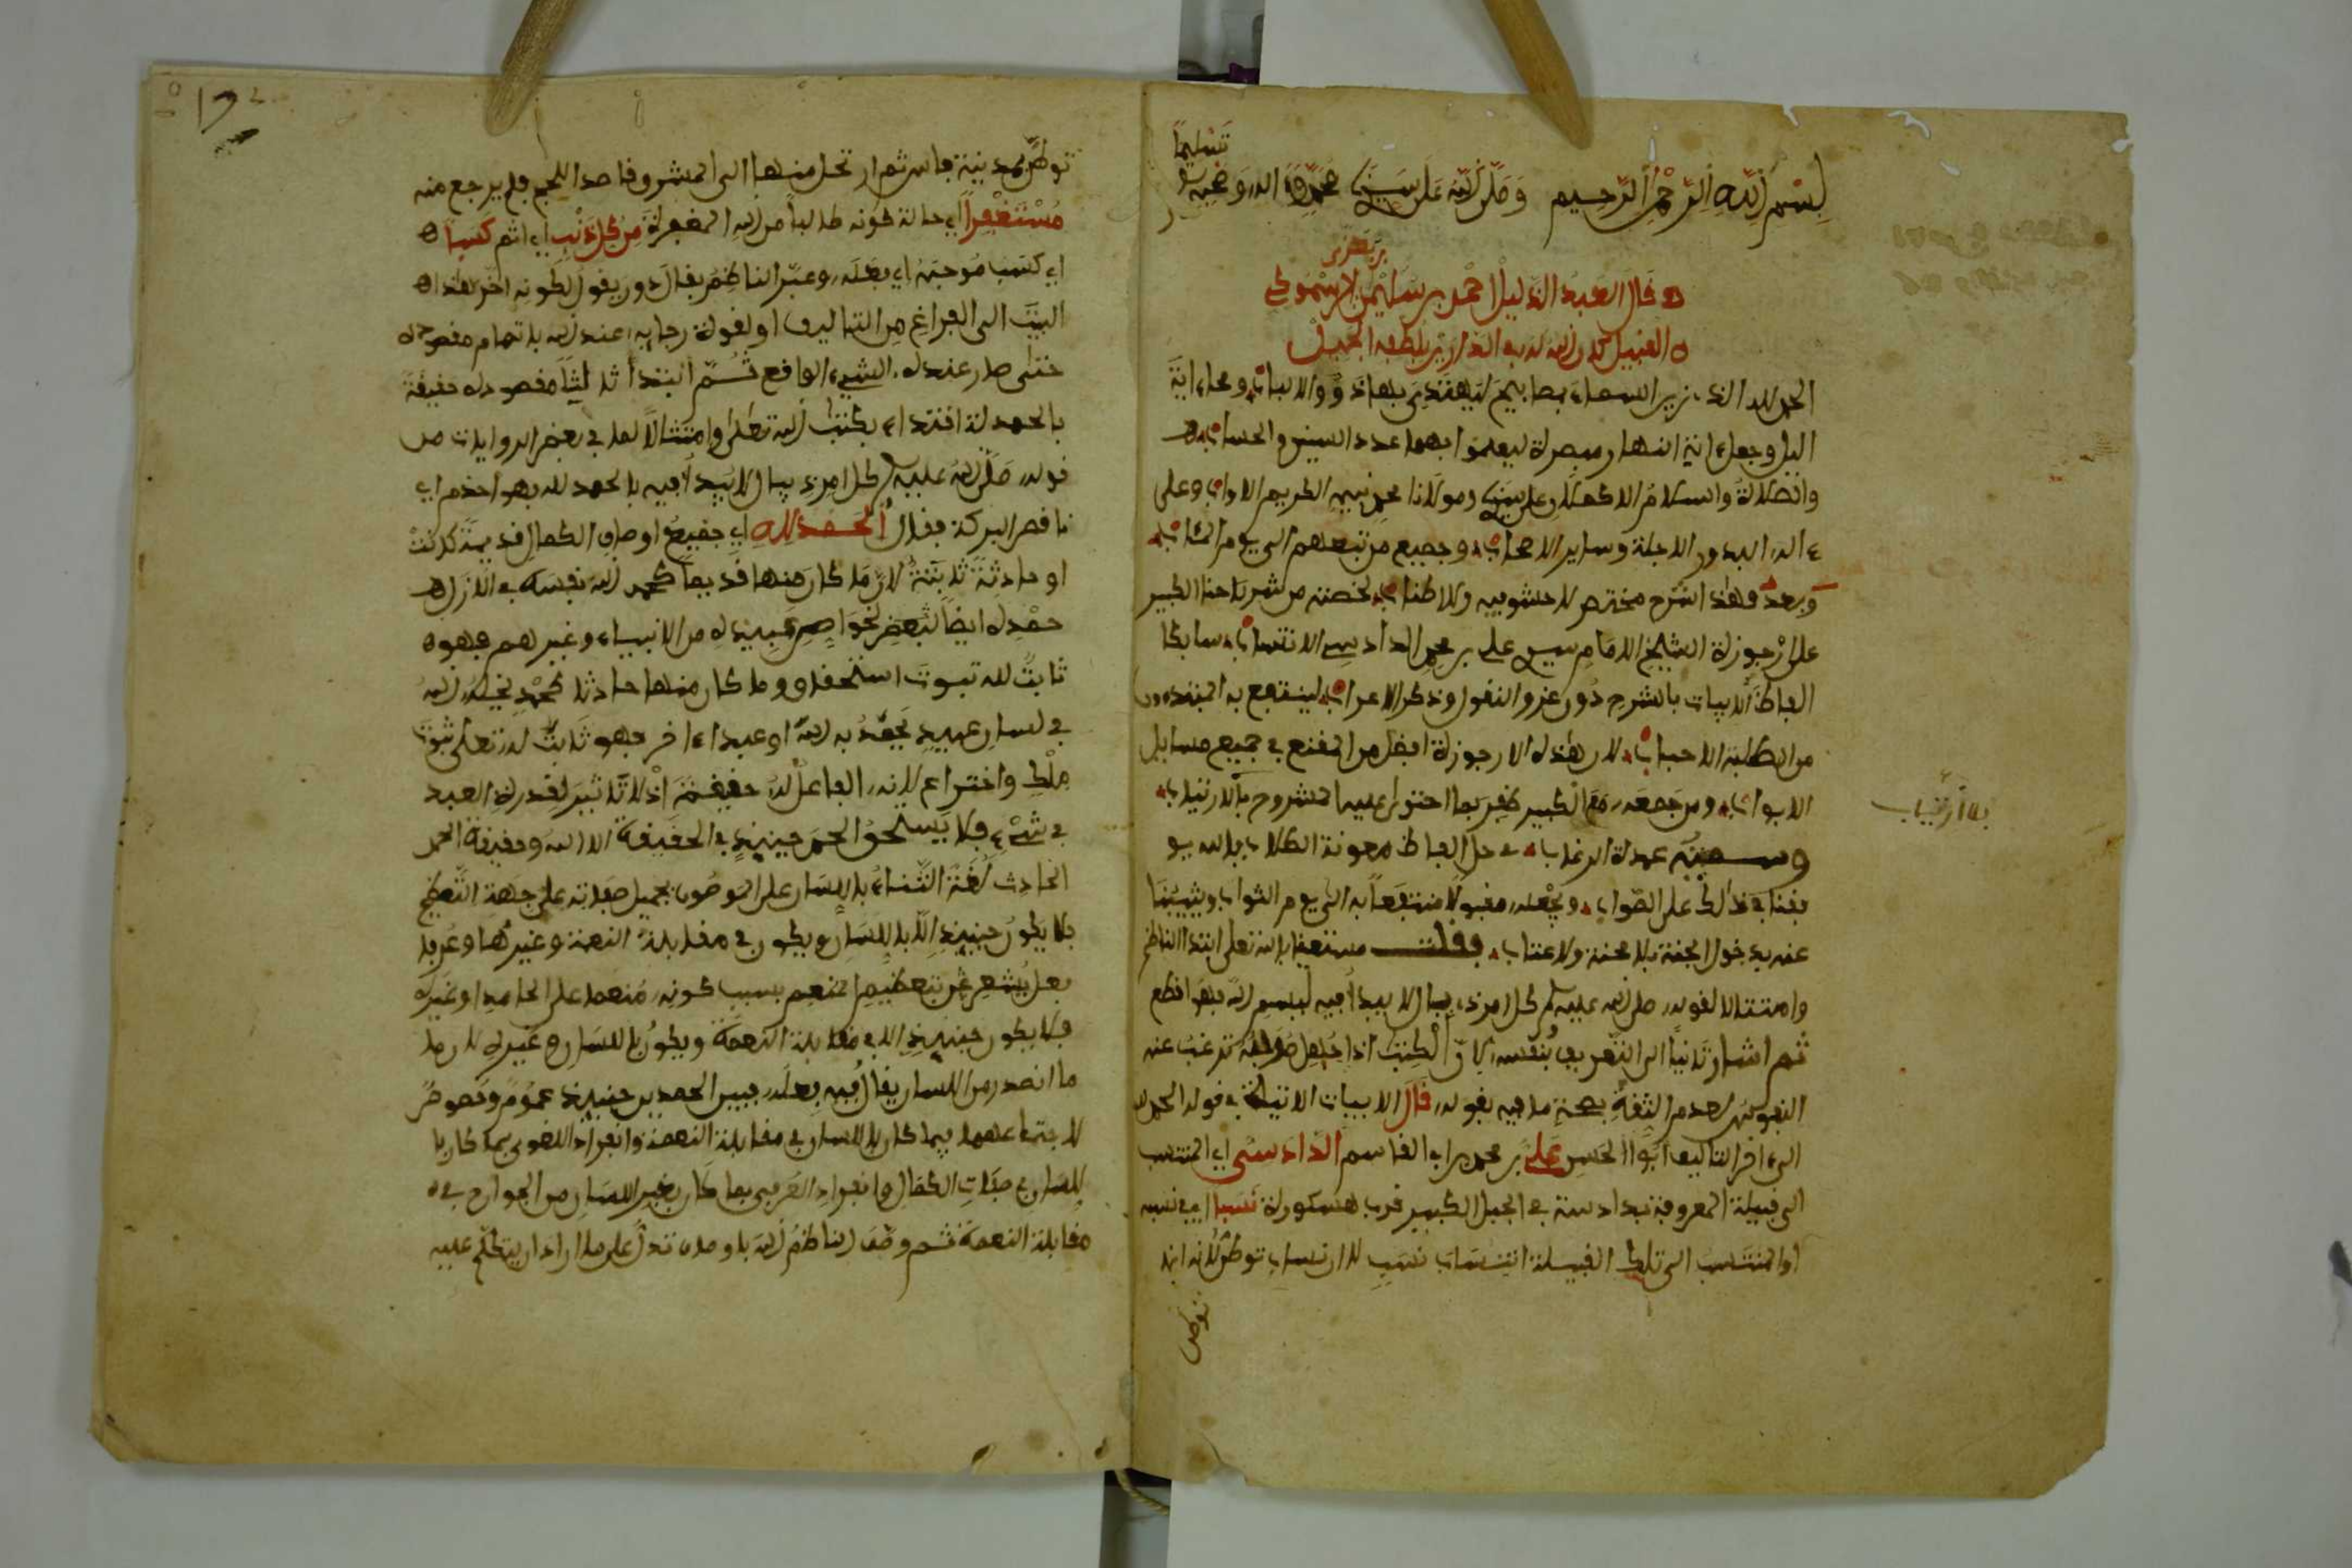 بسم الله الرحمن الرحيم وصلى الله على سيدنا محمد وءاله وصحبه وسلم
تسليما
بن يعزى
قال العبد الذليل احمد بن سليمن الرسموكي
القبيل كان الله له في الدارين بلطفه الجميل
الحمد لله الذي زين السماء بمصابيح ليهتدى بها ذوو الالباب ومحا ءاية
اليل وجعل ءاية النهار مبصرة ليعلموا بهما عدد السنين والحساب
والصلاة والسلام الاكملان على سيدنا ومولانا محمد نبيه الكريم الاواب وعلى
ءاله البدور الاجلة وساير الاصحاب وجميع من تبعهم الى يوم المئاب
وبعد فهذا شرح مختصر لا حشو فيه ولا اطناب لخصته من شرحنا الكبير
على ارجوزة الشيخ الامام سيدي علي بن محمد الدادسي الانتساب سابكا
الفاظ الابيات بالشرح دون عزو النقول وذكر الاعراب لينتفع به المبتدءون
من الطلبة الاحباب لان هذه الارجوزة افضل من المقنع في جميع مسايل
الابواب ومن جمعه مع الكبير ظفر بما احتوى عليه المشروح بلا ارتياب
بلا ارتياب
وسميته عمدة الرغاب في حل الفاظ معونة الطلاب فالله يو
فقنا في ذلك على الصواب ويجعله مقبولا منتفعا به الى يوم الثواب ويثيبنا
عنه بدخول الجنة بلا محنة ولا عتاب فقلت مستعينا بالله تعلى ابتدا الناظم
وامتثالا لقوله صلى الله عليه وسلم كل امر ذي بال لا يبدأ فيه ببسم الله فهو اقطع
ثم اشار ثانيا الى التعريف بنفسه لان الكتب اذا جهل مؤلفه ترغب عنه
النفوس لعدم الثقة بصحة ما فيه بقوله قال الابيات الاتية في قوله الحمد لله
الى ءاخر التاليف ابو الحسن علي بن محمد بن ابي القاسم الدادسي اي المنتسب
الى قبيلة المعروفة بدادسة في الجبل الكبير قرب هسكورة نسبا اي في نسبه
او المنتسب الى تلك القبيلة انتساب نسب لا انتساب توطن لانه انما
توطن
توطن بمدينة فاس ثم ارتحل منها الى المشرق قاصدا للحج فلم يرجع منه
مستغفرا اي حالة كونه طالبا من الله المغفرة من كل ذنب اي اثم كسبا
اي كسب موجبه اي فعله وعبر الناظم بقال دون يقول لكونه اخر هذا
البيت الى الفراغ من التاليف او لقوة رجايه عند الله باتمام مقصوده
حتى صار عنده الشيء الواقع ثم ابتدأ ثالثا مقصوده حقيقة
بالحمدلة اقتداء بكتاب الله تعلى وامتثالا لما في بعض الروايات من
قوله صلى الله عليه وسلم كل امر ذي بال لا يبدأ فيه بالحمد لله فهو اجذم اي
ناقص البركة فقال الحمد لله اي جميع اوصاف الكمال قديمة كانت
او حادثة ثابتة لان ما كان منها قديما كحمد الله نفسه في الازل
حمده ايضا لبعض خواص عبيده من الانبياء وغيرهم فهو
ثابت لله ثبوت استحقاق وما كان منها حادثا كحمد يخلقه الله
في لسان عبيد يحمد به الله او عبدا ءاخر فهو ثابت له تعلى ثبوت
ملك واختراع لانه الفاعل له حقيقة اذ لا تاثير لقدرة العبد
في شيء فلا يستحق الحمد حينيذ في الحقيقة الا الله وحقيقة الحمد
الحادث لغة الثناء باللسان على الموصوف بجميل صفاته على جهة التعظيم
فلا يكون حينيذ الا باللسان ويكون في مقابلة النعمة وغيرها وعرفا
فعل يشعر عن تعظيم المنعم بسبب كونه منعما على الحامد او غيره
فلا يكون حينيذ الا في مقابلة النعمة ويكون باللسان وغيره لان ما
ما انصدر من اللسان يقال فيه فعل فبين الحمدين حينيذ عموم وخصوص
لاجتماعهما فيما كان باللسان في مقابلة النعمة وانفراد اللغوي بما كان با
للسان في صفات الكمال وانفراد العرفي بما كان بغير اللسان من الجوارح في
مقابلة النعمة ثم وصف الناظم الله باوصاف تدل على ما اراد ان يتكلم عليه